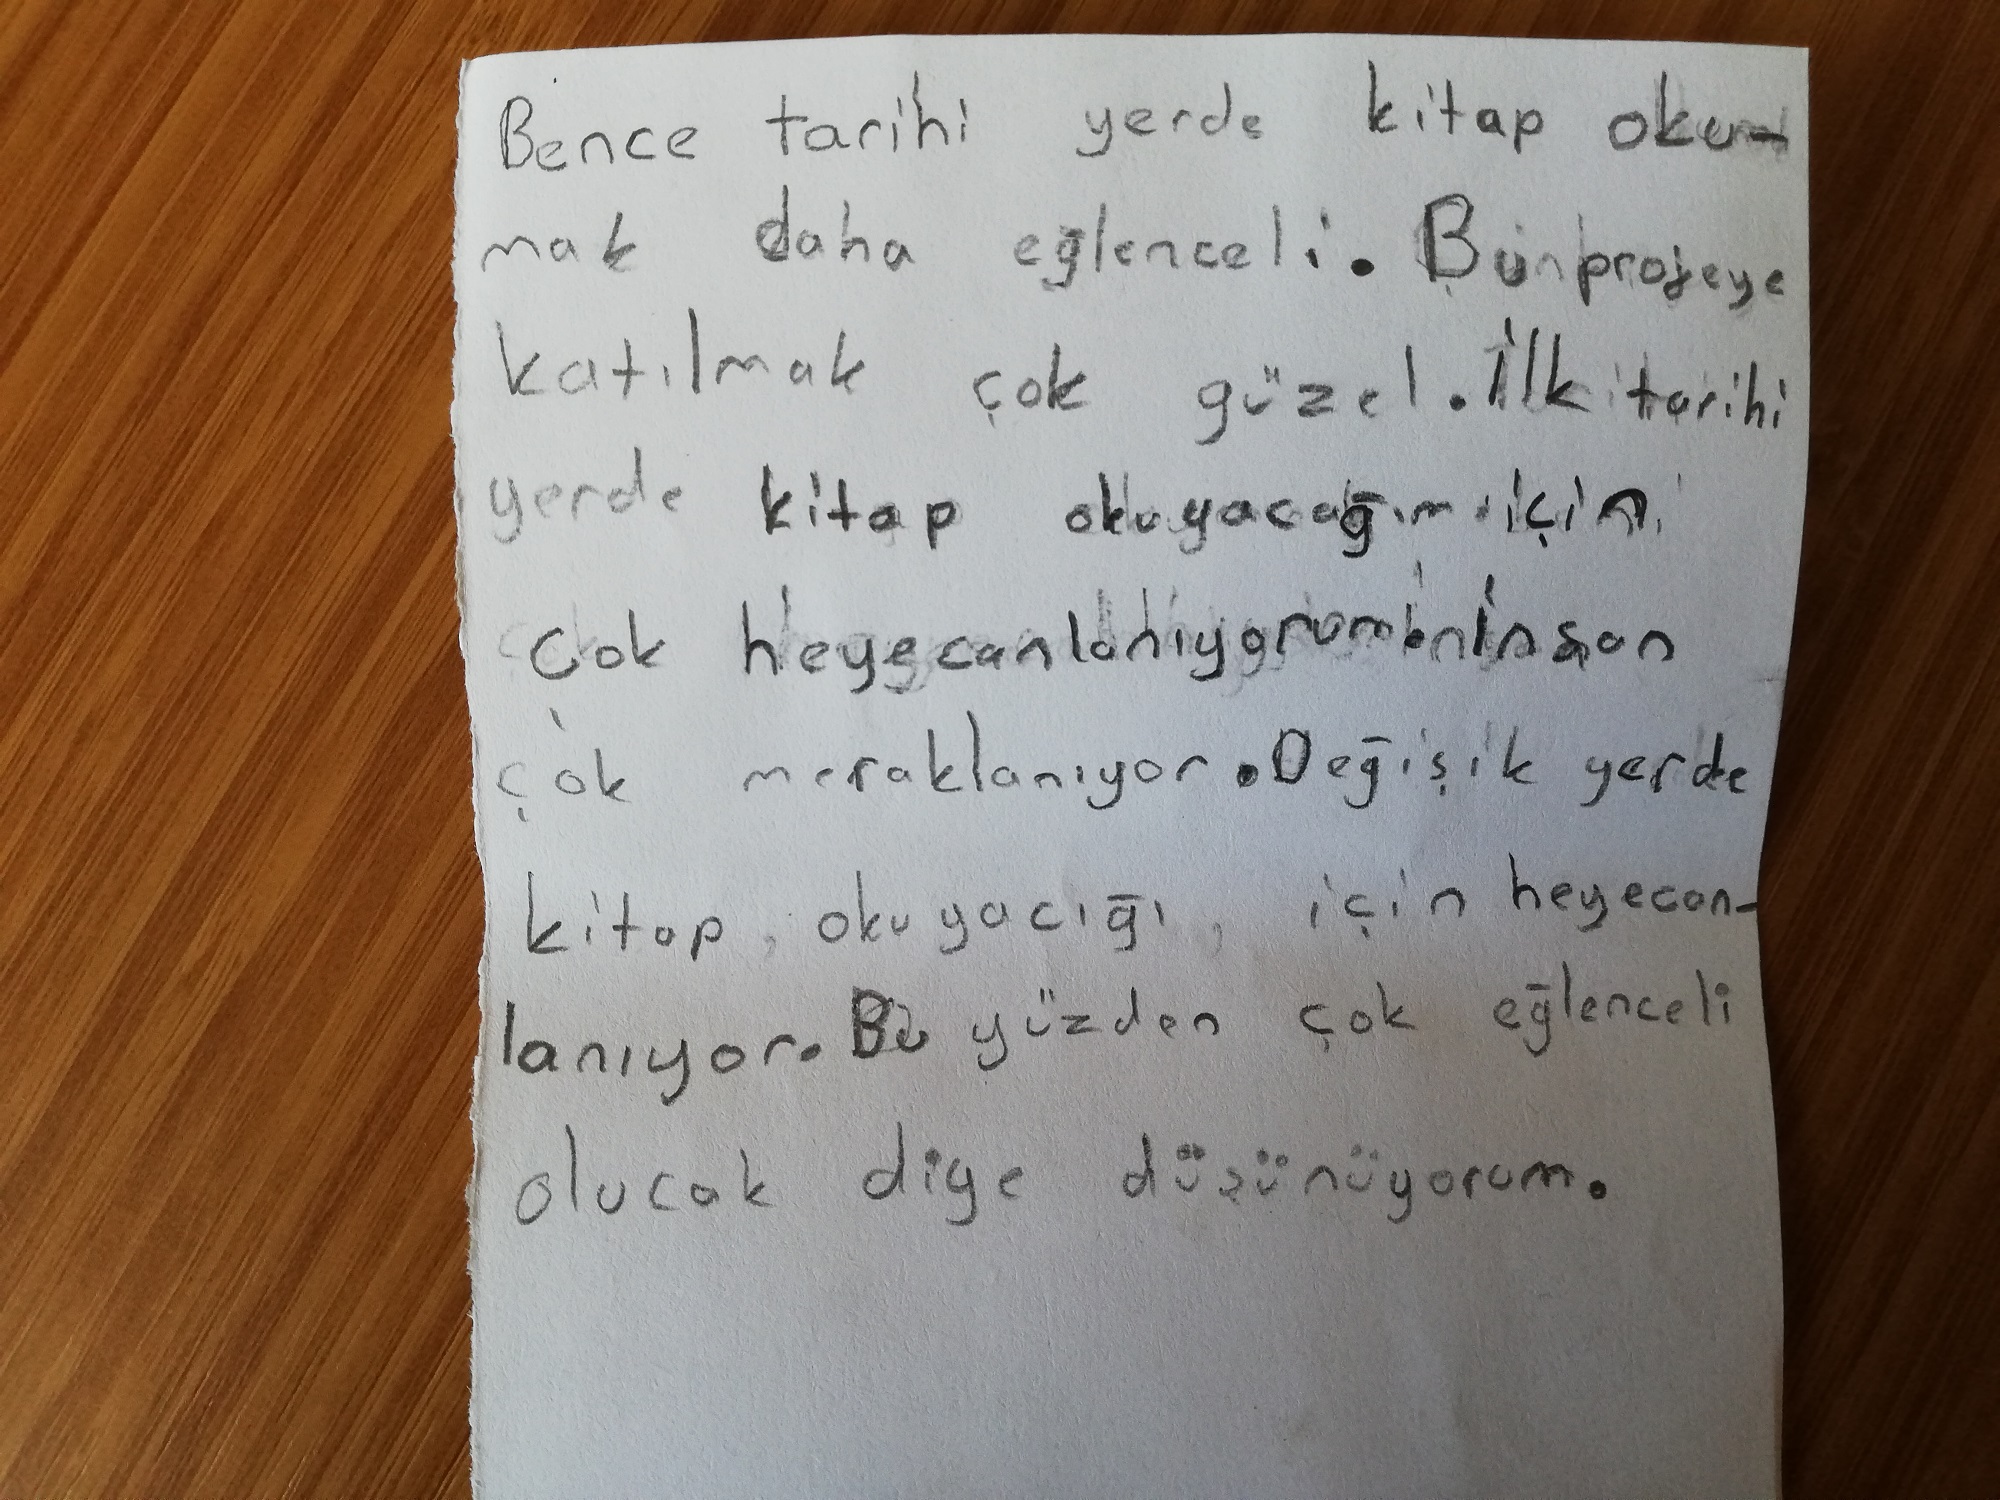 Bence tarihi yerde kitap oku-
mak daha eğlenceli. Bu projeye
katılmak çok güzel. İlk tarihi
yerde kitap okuyacağım için
çok heyecanlanıyorum. İnsan
çok meraklanıyor. Değişik yerde
kitap okuyacığı için heyecan-
lanıyor. Bu yüzden çok eğlenceli
olucak diye düşünüyorum.